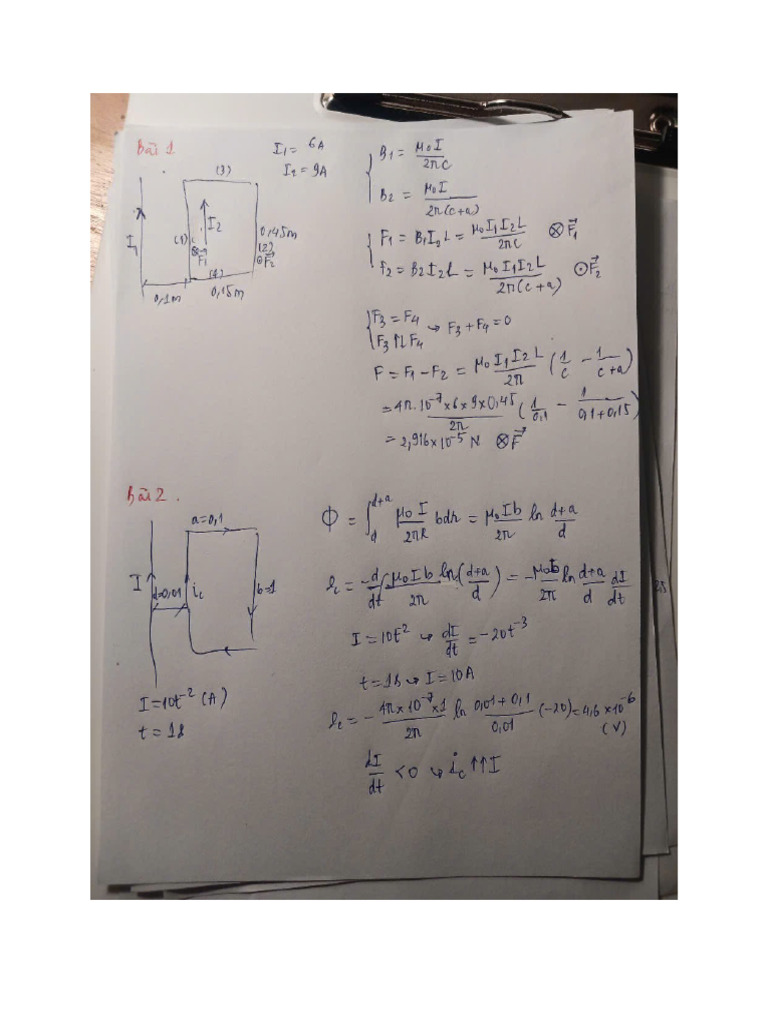 Bài 1
I₁ = 6A
I₂ = 9A
B₁ = μ₀I / 2πc
B₂ = μ₀I / 2π(c+a)
(3)
I₁
(1)
I₂
0,45m
(2)
⊗ F₁
⊙ F⃗₂
(4)
0,1m
0,15m
F₁ = B₁I₂L = μ₀I₁I₂L / 2πc ⊗ F⃗₁
F₂ = B₂I₂L = μ₀I₁I₂L / 2π(c+a) ⊙ F⃗₂
F₃ = F₄
F₃ ↑↓ F₄ → F₃ + F₄ = 0
F = F₁ - F₂ = μ₀I₁I₂L / 2π (1/c - 1/(c+a))
= 4π.10⁻⁷×6×9×0,45 / 2π (1/0,1 - 1/(0,1+0,15))
= 2,916×10⁻⁵ N ⊗ F⃗
Bài 2.
a=0,1
I
d=0,01
i_c
b=1
I=10t⁻² (A)
t = 1s
Φ = ∫_d^{d+a} μ₀I / 2πR bdr = μ₀Ib / 2π ln (d+a)/d
ℰc = -d/dt (μ₀Ib / 2π ln (d+a)/d) = -μ₀b / 2π ln (d+a)/d dI/dt
I = 10t⁻² → dI/dt = -20t⁻³
t=1s → I=10A
ℰc = - 4π×10⁻⁷×1 / 2π ln (0,01+0,1)/0,01 (-20) = 4,6×10⁻⁶ (V)
dI/dt <0 → i_c ↑↑ I